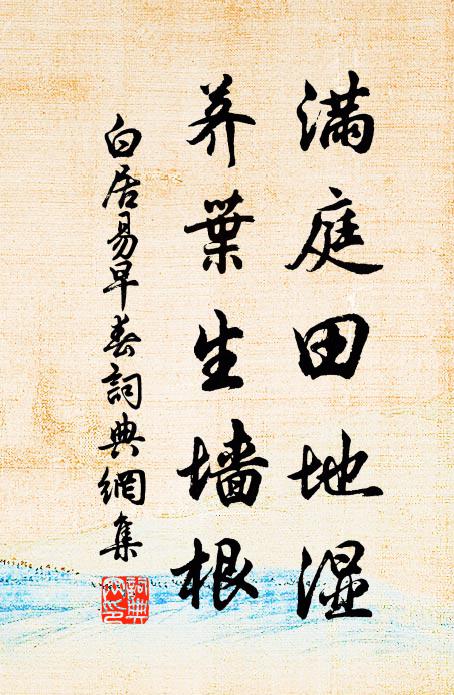 满庭田地湿
荠葉生墙根
白居易早春詞典網集